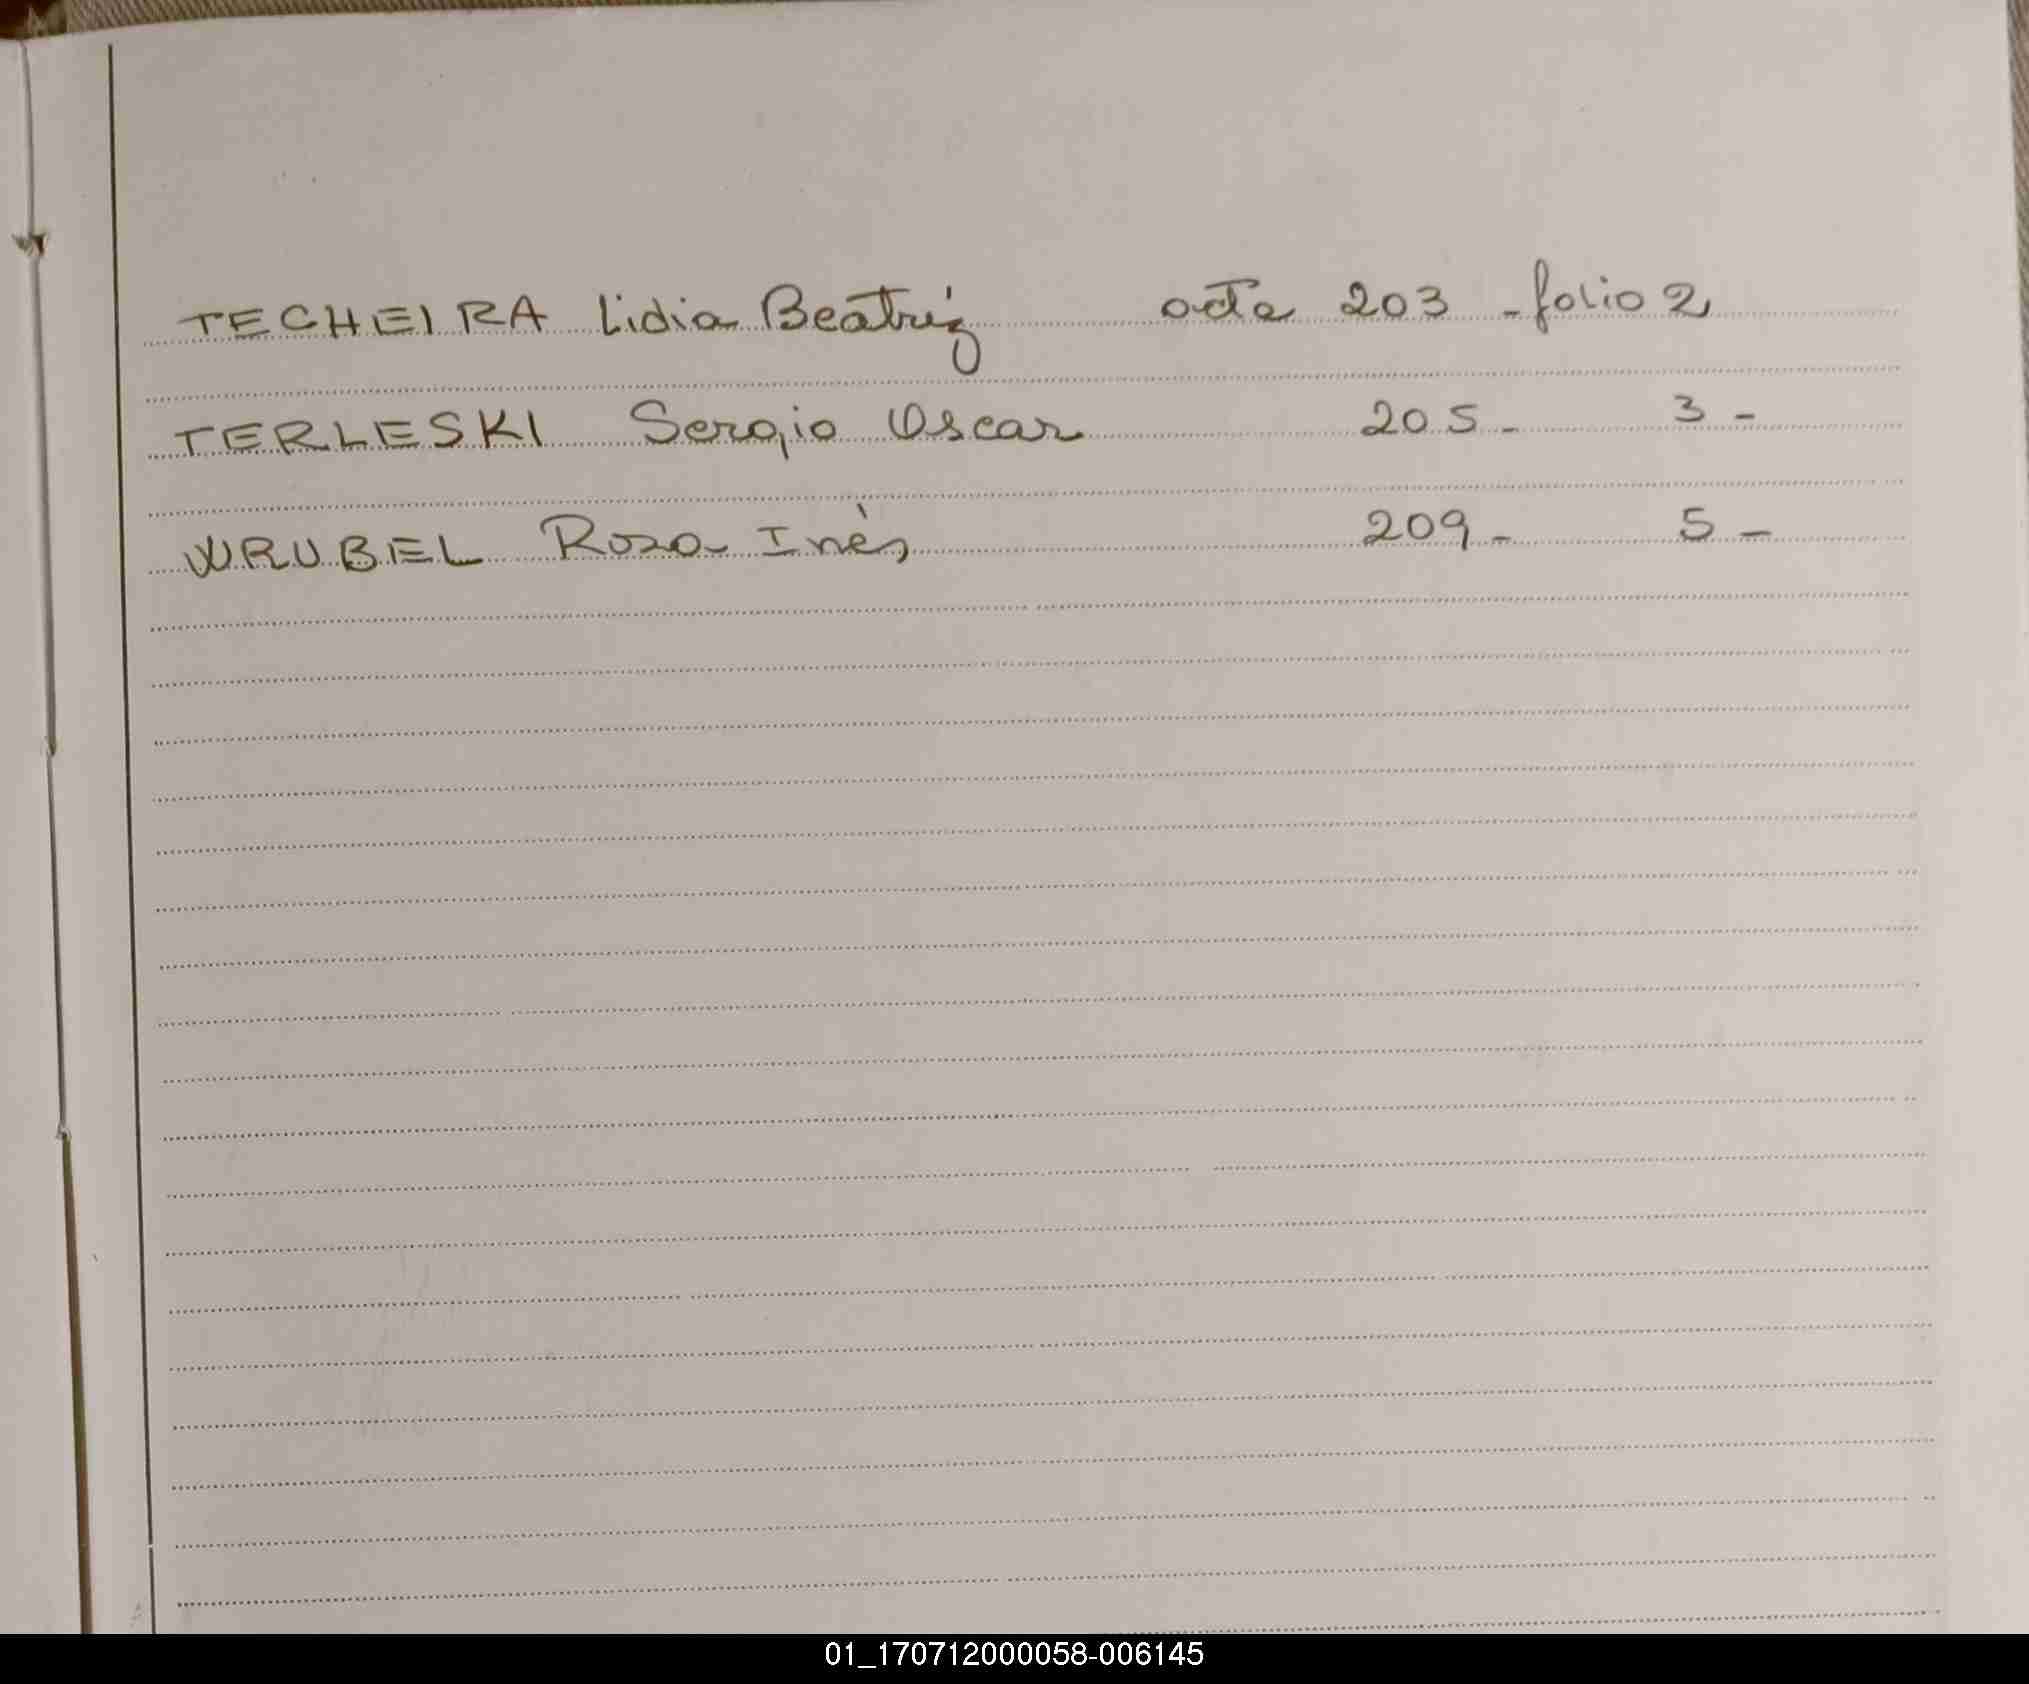 TECHEIRA Lidia Beatriz acta 203 - folio 2
TERLESKI Sergio Oscar 205 - 3 -
WRUBEL Rosa Inés 209 - 5 -
01_170712000058-006145